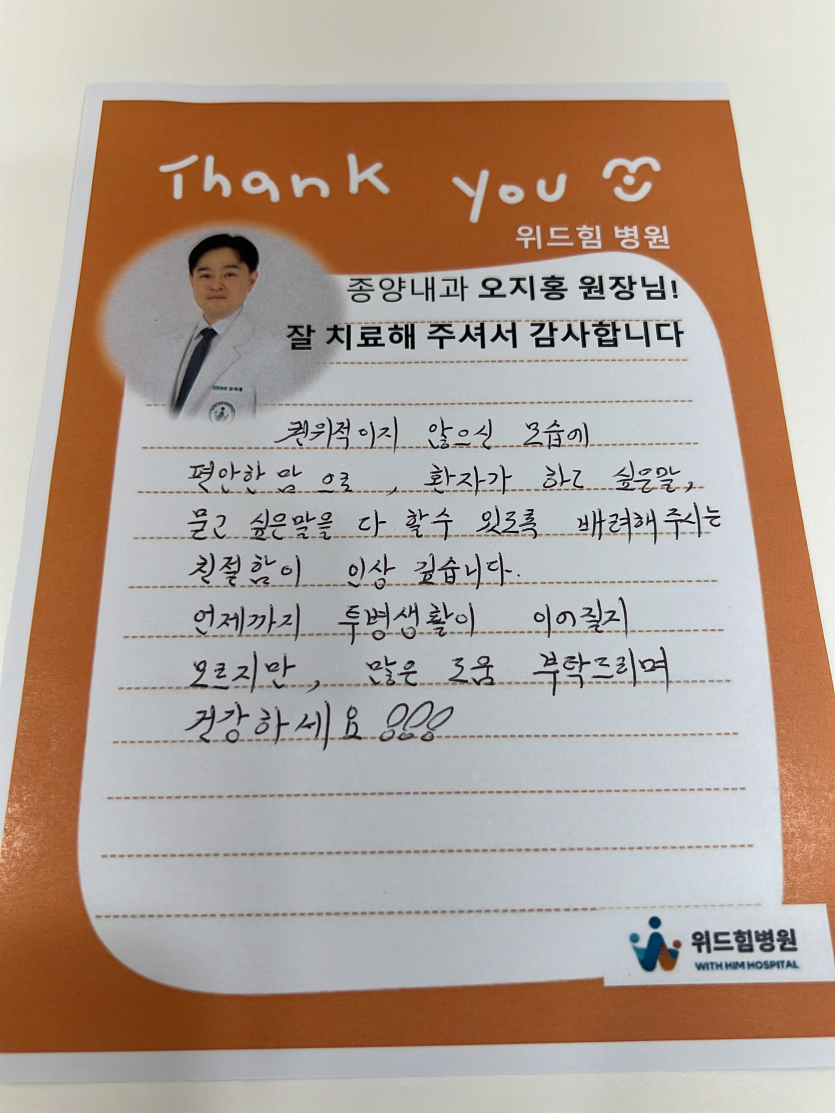 Thank you
위드힘 병원
종양내과 오지홍 원장님!
잘 치료해 주셔서 감사합니다
권위적이지 않으신 모습에
편안한 맘으로, 환자가 하고 싶은말,
묻고 싶은말을 다 할수 있도록 배려해주시는
친절함이 인상 깊습니다.
언제까지 투병생활이 이어질지
모르지만, 많은 도움 부탁드리며
건강하세요
위드힘병원
WITH HIM HOSPITAL